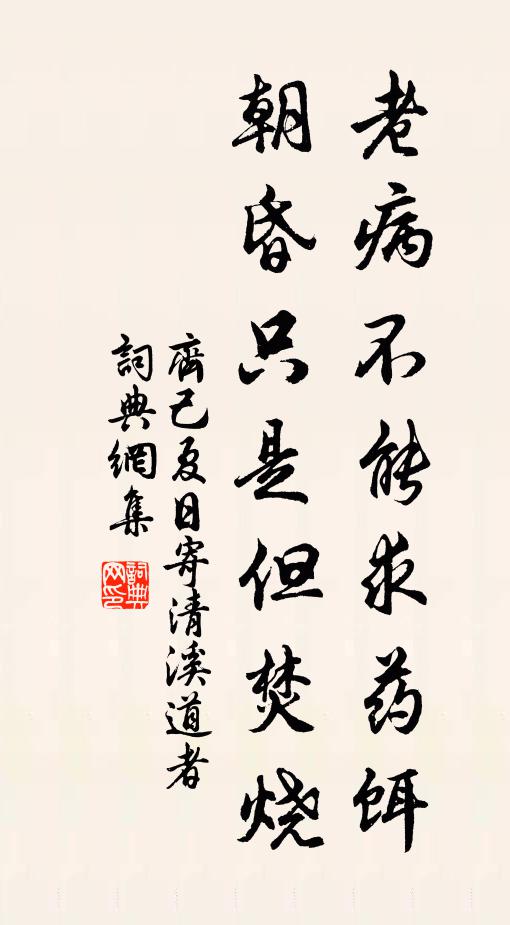 老病不能求药饵
朝昏只是但焚烧
齊己夏日寄清溪道者
詞典網集
詞典
网印